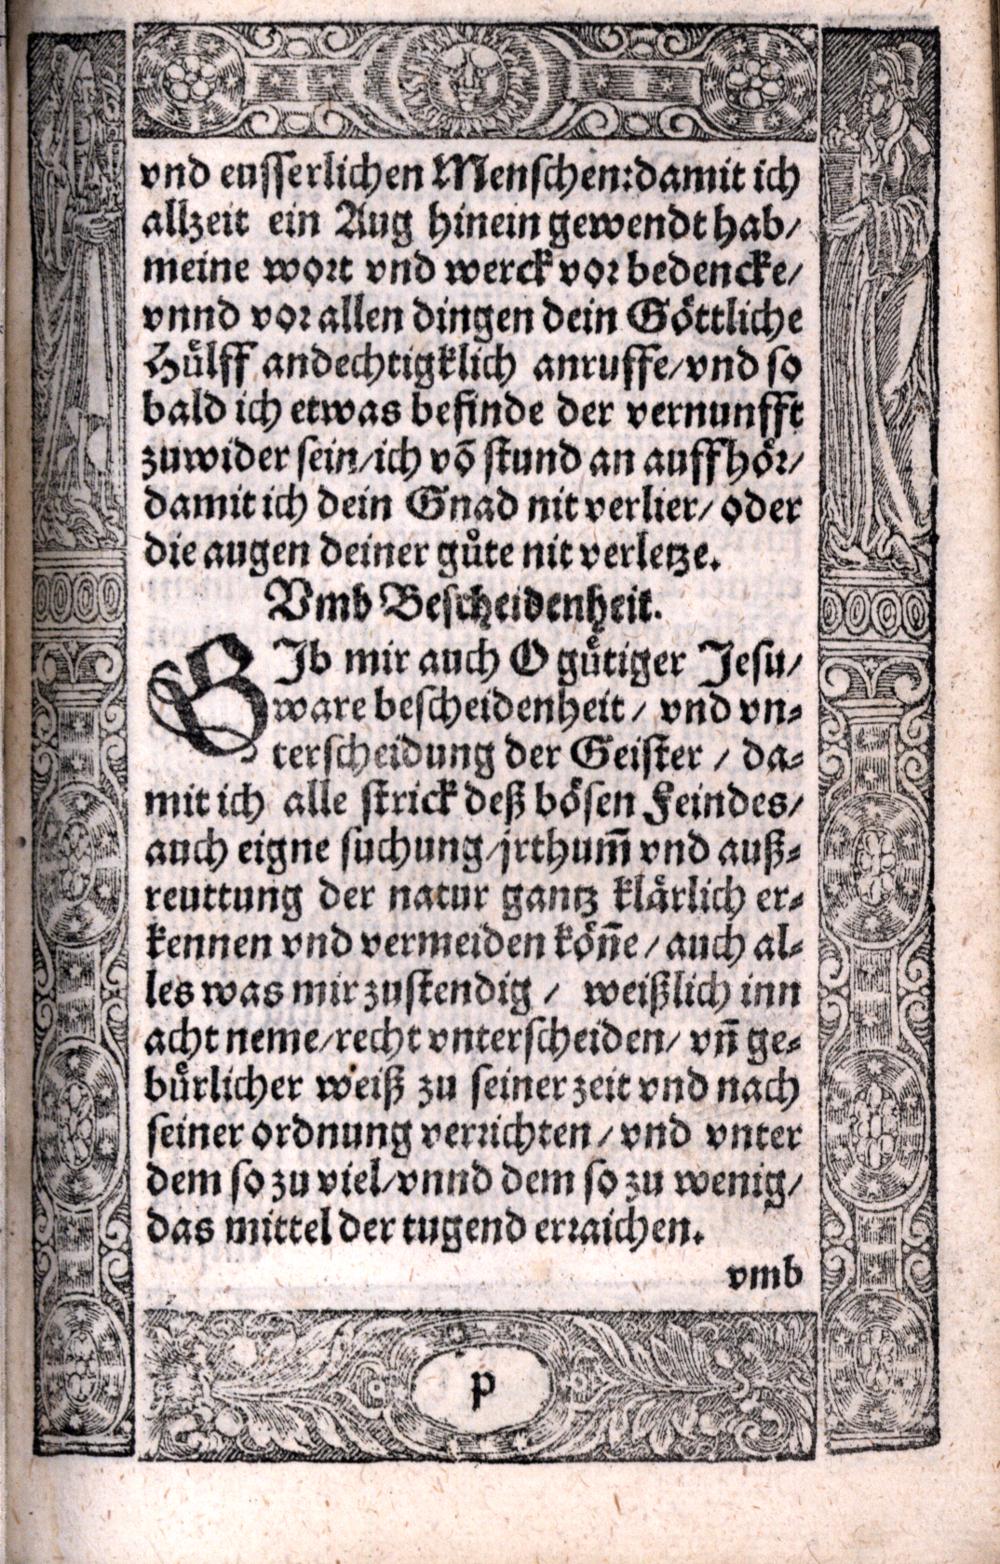 vnd eusserlichen Menschen: damit ich
allzeit ein Aug hinein gewendt hab/
meine wort vnd werck vor bedencke/
vnnd vor allen dingen dein Göttliche
Hülff andechtigklich anruffe/ vnd so
bald ich etwas befinde der vernunfft
zuwider sein/ ich võ stund an auffhör/
damit ich dein Gnad nit verlier/ oder
die augen deiner gůte nit verletze.
Vmb Bescheidenheit.
GIb mir auch O gütiger Jesu/
ware bescheidenheit/ vnd vn-
terscheidung der Geister/ da-
mit ich alle strick deß bösen Feindes/
auch eigne suchung/ jrthum̃ vnd auß-
reuttung der natur gantz klärlich er-
kennen vnd vermeiden kön̄e/ auch al-
les was mir zustendig/ weißlich inn
acht neme/ recht vnterscheiden/ vn̄ ge-
bürlicher weiß zu seiner zeit vnd nach
seiner ordnung verrichten/ vnd vnter
dem so zu viel/ vnnd dem so zu wenig/
das mittel der tugend erraichen.
vmb
p